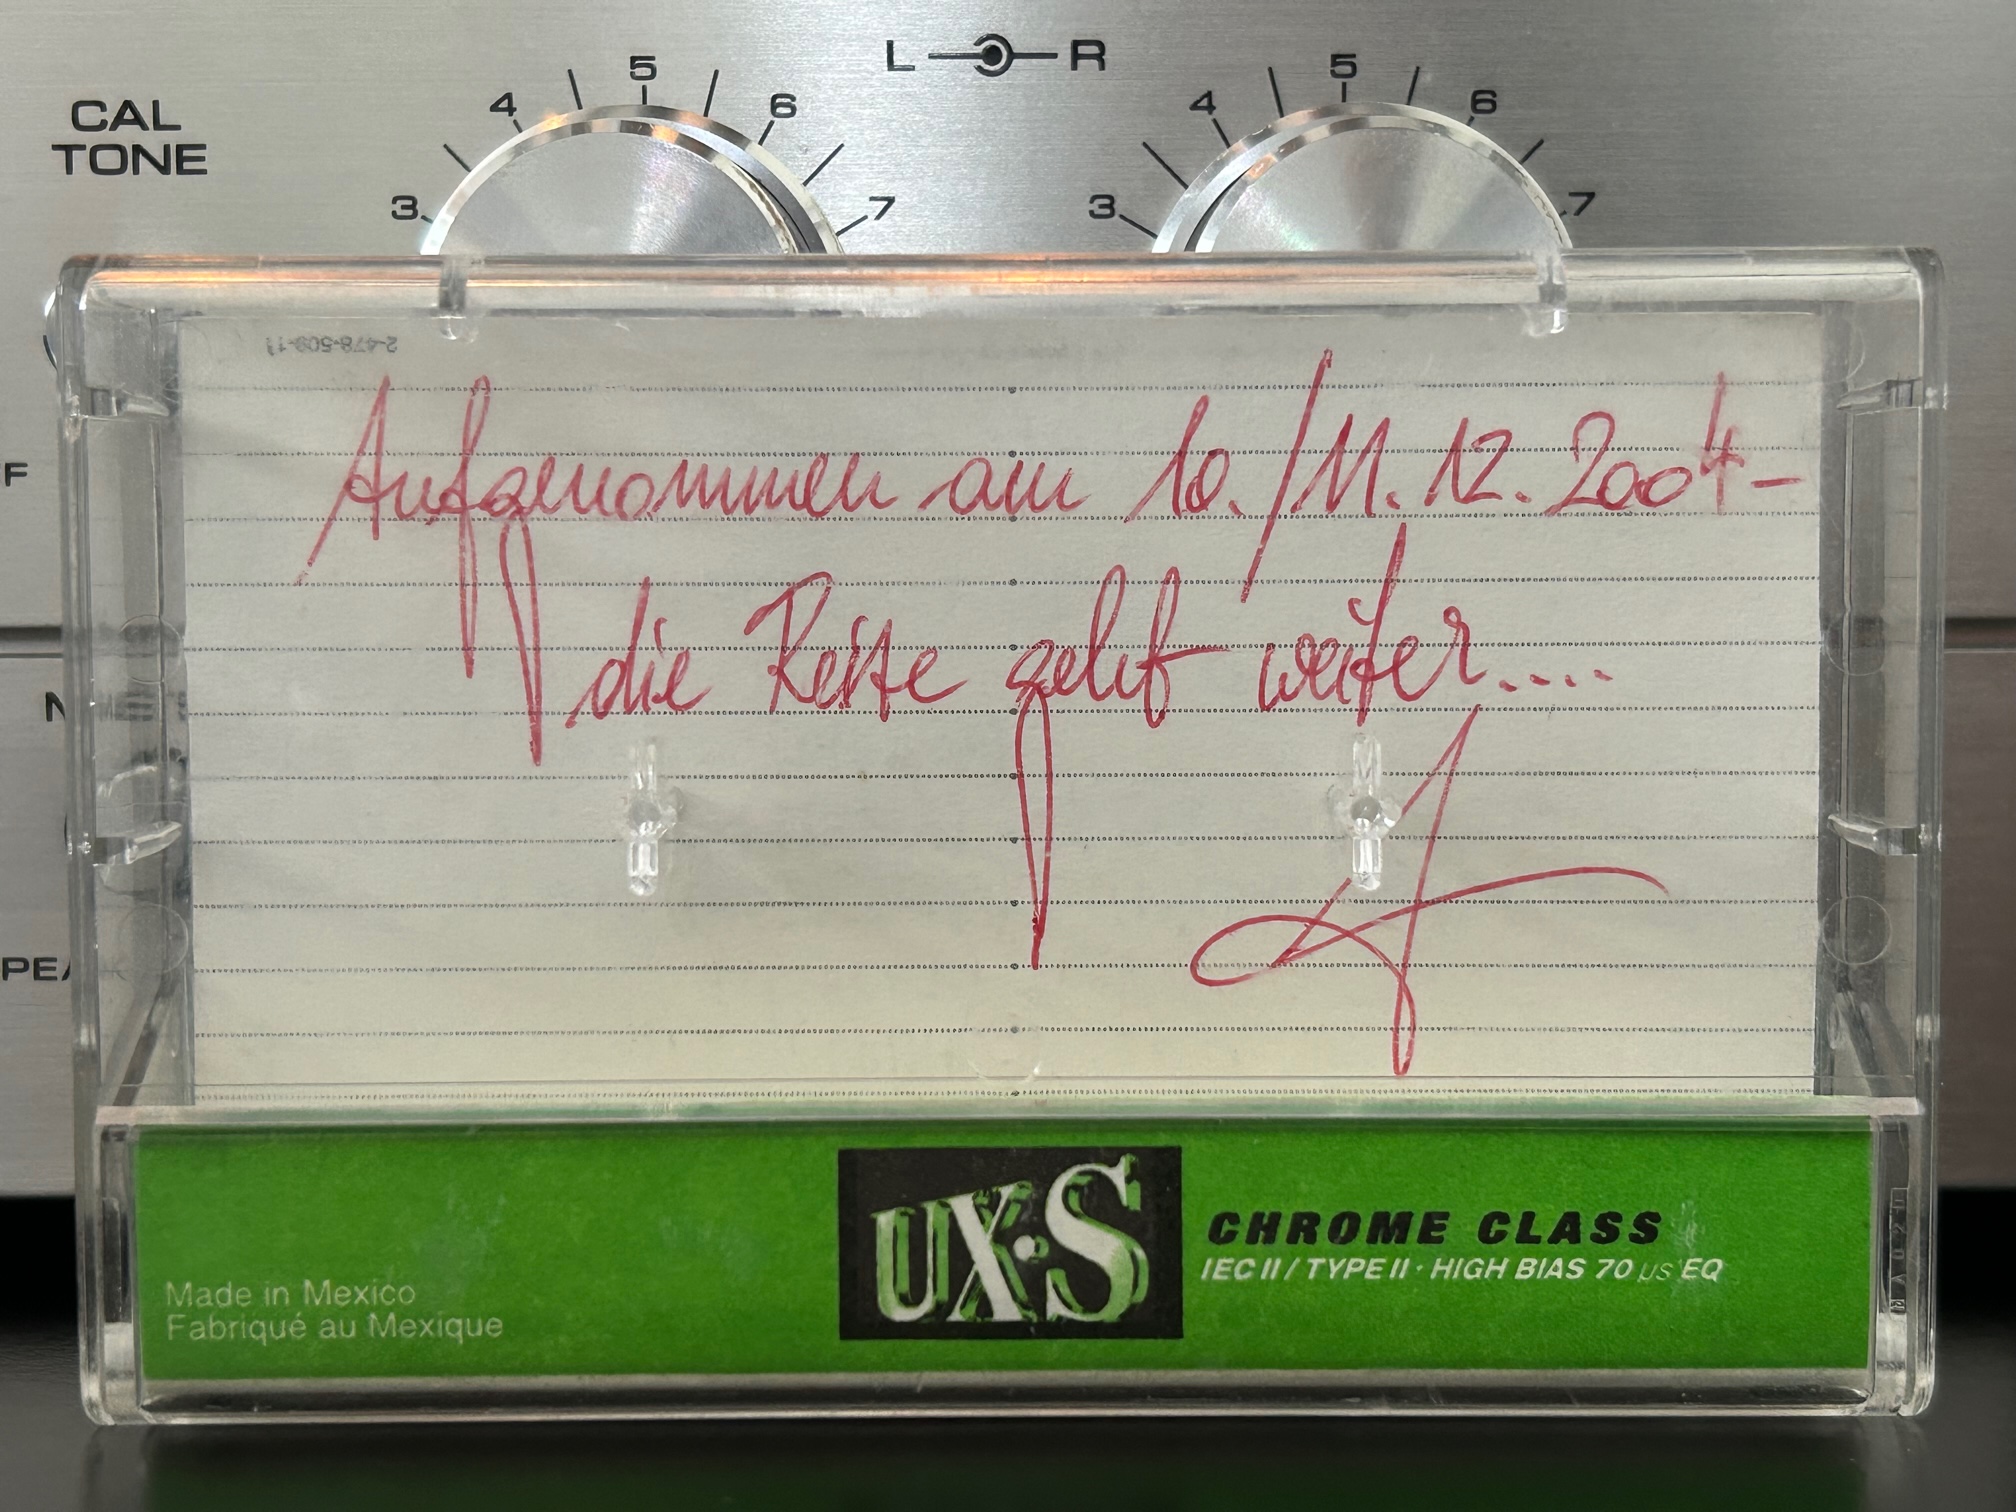 L R
CAL
TONE
3 4 5 6 7
3 4 5 6 7
F
N
PEA
2-478-509-11
Aufgenommen am 10./11.12.2004-
die Reise geht weiter....
UX·S
CHROME CLASS
IEC II / TYPE II · HIGH BIAS 70 µs EQ
Made in Mexico
Fabriqué au Mexique